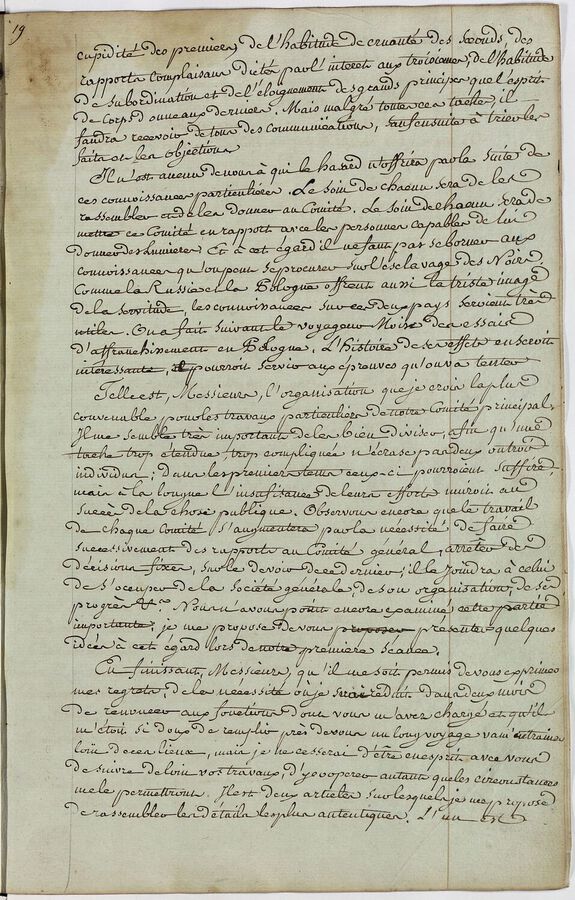 19
cupidité des premiers, de l'habitude de cruauté des seconds, des
rapports complaisans dictés par l'interet aux troisiemes, de l'habitude
de subordination et de l'éloignement des grands principes que l'esprit
de corps donne aux derniers. Mais malgré toutes ces taches, il
faudra recevoir de tous des communications, sauf ensuite à trier les
faits et les objections
Il n'est aucun de nous à qui le hazard n'offrira par la suite de
ces connoissances particulières. Le soin de chacun sera de les
rassembler et de les donner au Comité. Le soin de chacun sera de
mettre ce Comité en rapport avec les personnes capables de lui
donner des lumieres. Et à cet égard il ne faut pas se borner aux
connoissances qu'on peut se procurer sur l'esclavage des Noirs.
Comme la Russie et la Pologne offrent aussi la triste image
de la servitude, les connoissances sur ces deux pays seroient très
utiles. On a fait suivant le voyageur des essais
d'affranchissement en Pologne. L'histoire de ses effets en seroit
intéressante, et pourroit servir aux épreuves qu'on va tenter
Telle est, Messieurs, l'organisation que je crois la plus
convenable pour les travaux particuliers de notre Comité principal.
Il me semble très important de les bien diviser, afin qu'une
tache trop étendue, trop compliquée n'écrase pas deux ou trois
individus; dans les premiers tems ceux-ci pourroient suffire,
mais à la longue l'insuffisance de leurs efforts nuiroit au
succès de la chose publique. Observons encore que le travail
de chaque Comité s'augmentera par la nécessité de faire
successivement des rapports au Comité général, arrêter des
décisions fixes, sur le devoir de ce dernier; il se joindra à celui
de s'occuper de la Société générale, de son organisation, de ses
progrès &c. Nous n'avons point encore examiné cette partie
importante; je me propose de vous proposer présenter quelques
idées à cet égard lors de notre premiere séance.
En finissant, Messieurs, qu'il me soit permis de vous exprimer
mes regrets, de la nécessité où je serai réduit dans deux mois
de renoncer aux fonctions dont vous m'avez chargé et qu'il
m'étoit si doux de remplir près de vous un long voyage va m'entrainer
loin de ces lieux, mais je ne cesserai d'être en esprit avec vous
de suivre de loin vos travaux, d'y coopérer autant que les circonstances
me le permettront. Il est deux articles sur lesquels je me propose
de rassembler les détails les plus autentiques. L'un est